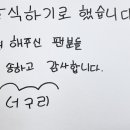 식하기로 했습니다
해주신 팬분들
송하고 감사합니다.
(너구리)